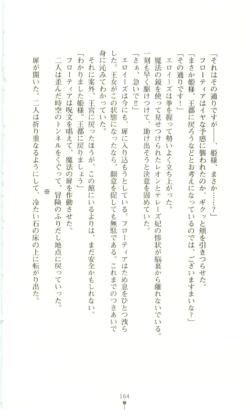 「それはその通りですが……、姫様、まさか……?」
フローティアはイヤな予感に襲われたのか、ギクッと頬を引きつらせた。
「まさか姫様、王都に戻ろうなどとお考えになっているのでは、ございますまいな?」
「その通りです!」
エロイーズは拳を握って勢いよく立ち上がった。
魔法の鏡を使って見せつけられたレオンとテレーズ妃の惨状が脳裏から離れないでいる。
一刻も早く駆けつけて、助け出そうと決意を固めていた。
「さぁ、急いで!」
エロイーズは今にも、扉に入り込もうとしている。フローティアはため息をひとつ洩らした。王女がこの状態になったなら、翻意を促しても無駄である。これまでのつきあいで身に沁みてわかっていた。
それに案外、王宮に戻ったほうが、この館にいるよりは、まだ安全かもしれない。
「わかりました姫様、王都に戻りましょう」
フローティアは呪文を唱えて、魔法の扉を作動させた。
二人は歪んだ時空のトンネルをくぐって、冒険のふりだし地点に戻っていった。
※
扉が開いた。二人は折り重なるようにして、冷たい石の床の上に転がり出た。
164